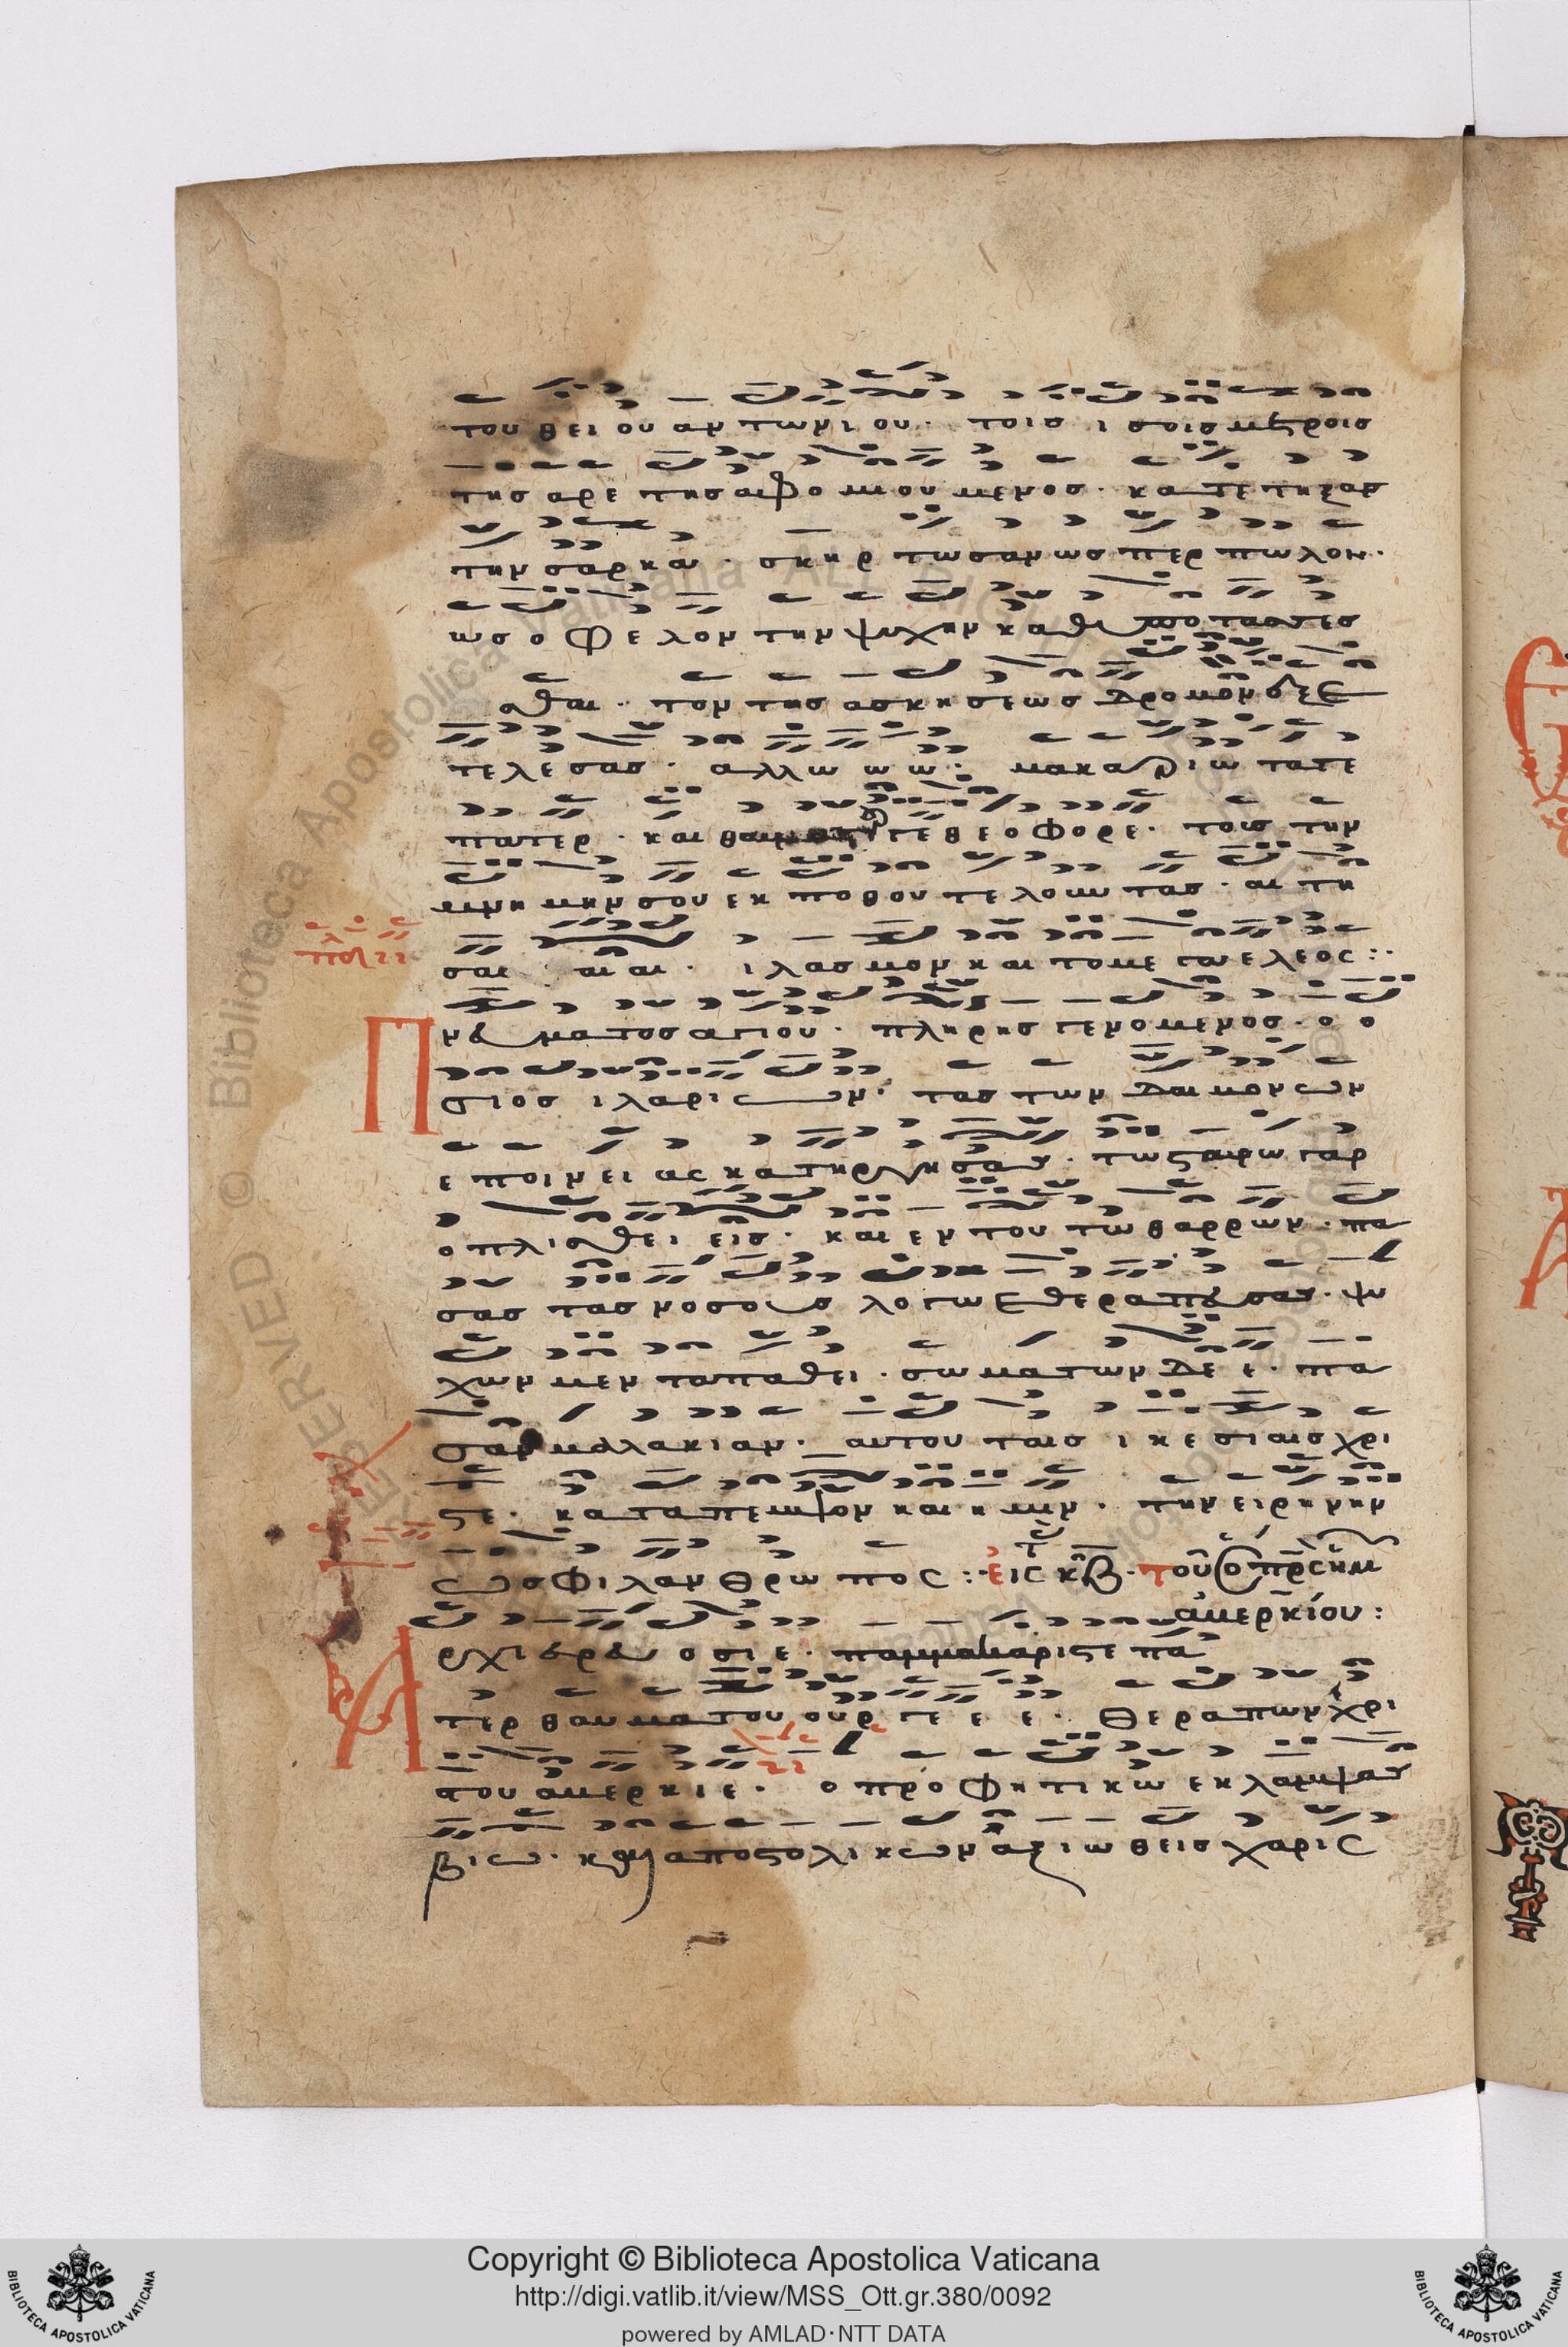 του θει ου αν τωνι ου · τοισ ι σοισ μετροισ
τησ αρε τησ αιθο μιου μενοσ · κα τε τηξασ
την σαρ κα · σκηρ τωσαν ωσ περ πωλον ·
ωσ οφε λον την ψυχην καθυ πο τα ατεσ
σθαι · τον τησ ασκησεωσ δρομον δε ε
τελε σασ · αλλω ω ω · μακαριω τατε
πατερ · και θαυματι τε θεοφορε · τουσ την
μνη μην σου εκ ποθου τε λουν τασ · αι τη
σαι αι αι · ι λασ μον και το με γα ελεος :·
Πνευ ματοσ αγιου · πληρησ γενομενοσ · ο ο
σιοσ ιλαρι ων · τασ των δαι μον ων
ε ποιμει ας κατηρ γη σασ · τω σταυρω γαρ
οπλι σθει εισ · και εν του τω θαρρων · πα
σασ τασ νοσουσ λογω εθεραπευσασ · ψυ
χων μεν τα παθει · σωματων δε ε · πα
σαν μαλακιαν · αυτου ταισ ι κε σι αισ χρι
στε · κα ταπεμψον και η μιν · την ειρη νην
ωσ φιλαν θρω πος :· εἰς κβ · του ὁ πρς ἡμ
ἀμερκίου :
Αρχι ερευ οσι ε · παμμακαριστε πα
τερ θαυμα του ουρ γε ε ε · θεραπων χρι
στου αμερκιε · ο προφητικω εκλαμψασ
βιω · και αποστολι κων αξιω θεισ χαρις
Copyright © Biblioteca Apostolica Vaticana
http://digi.vatlib.it/view/MSS_Ott.gr.380/0092
powered by AMLAD·NTT DATA